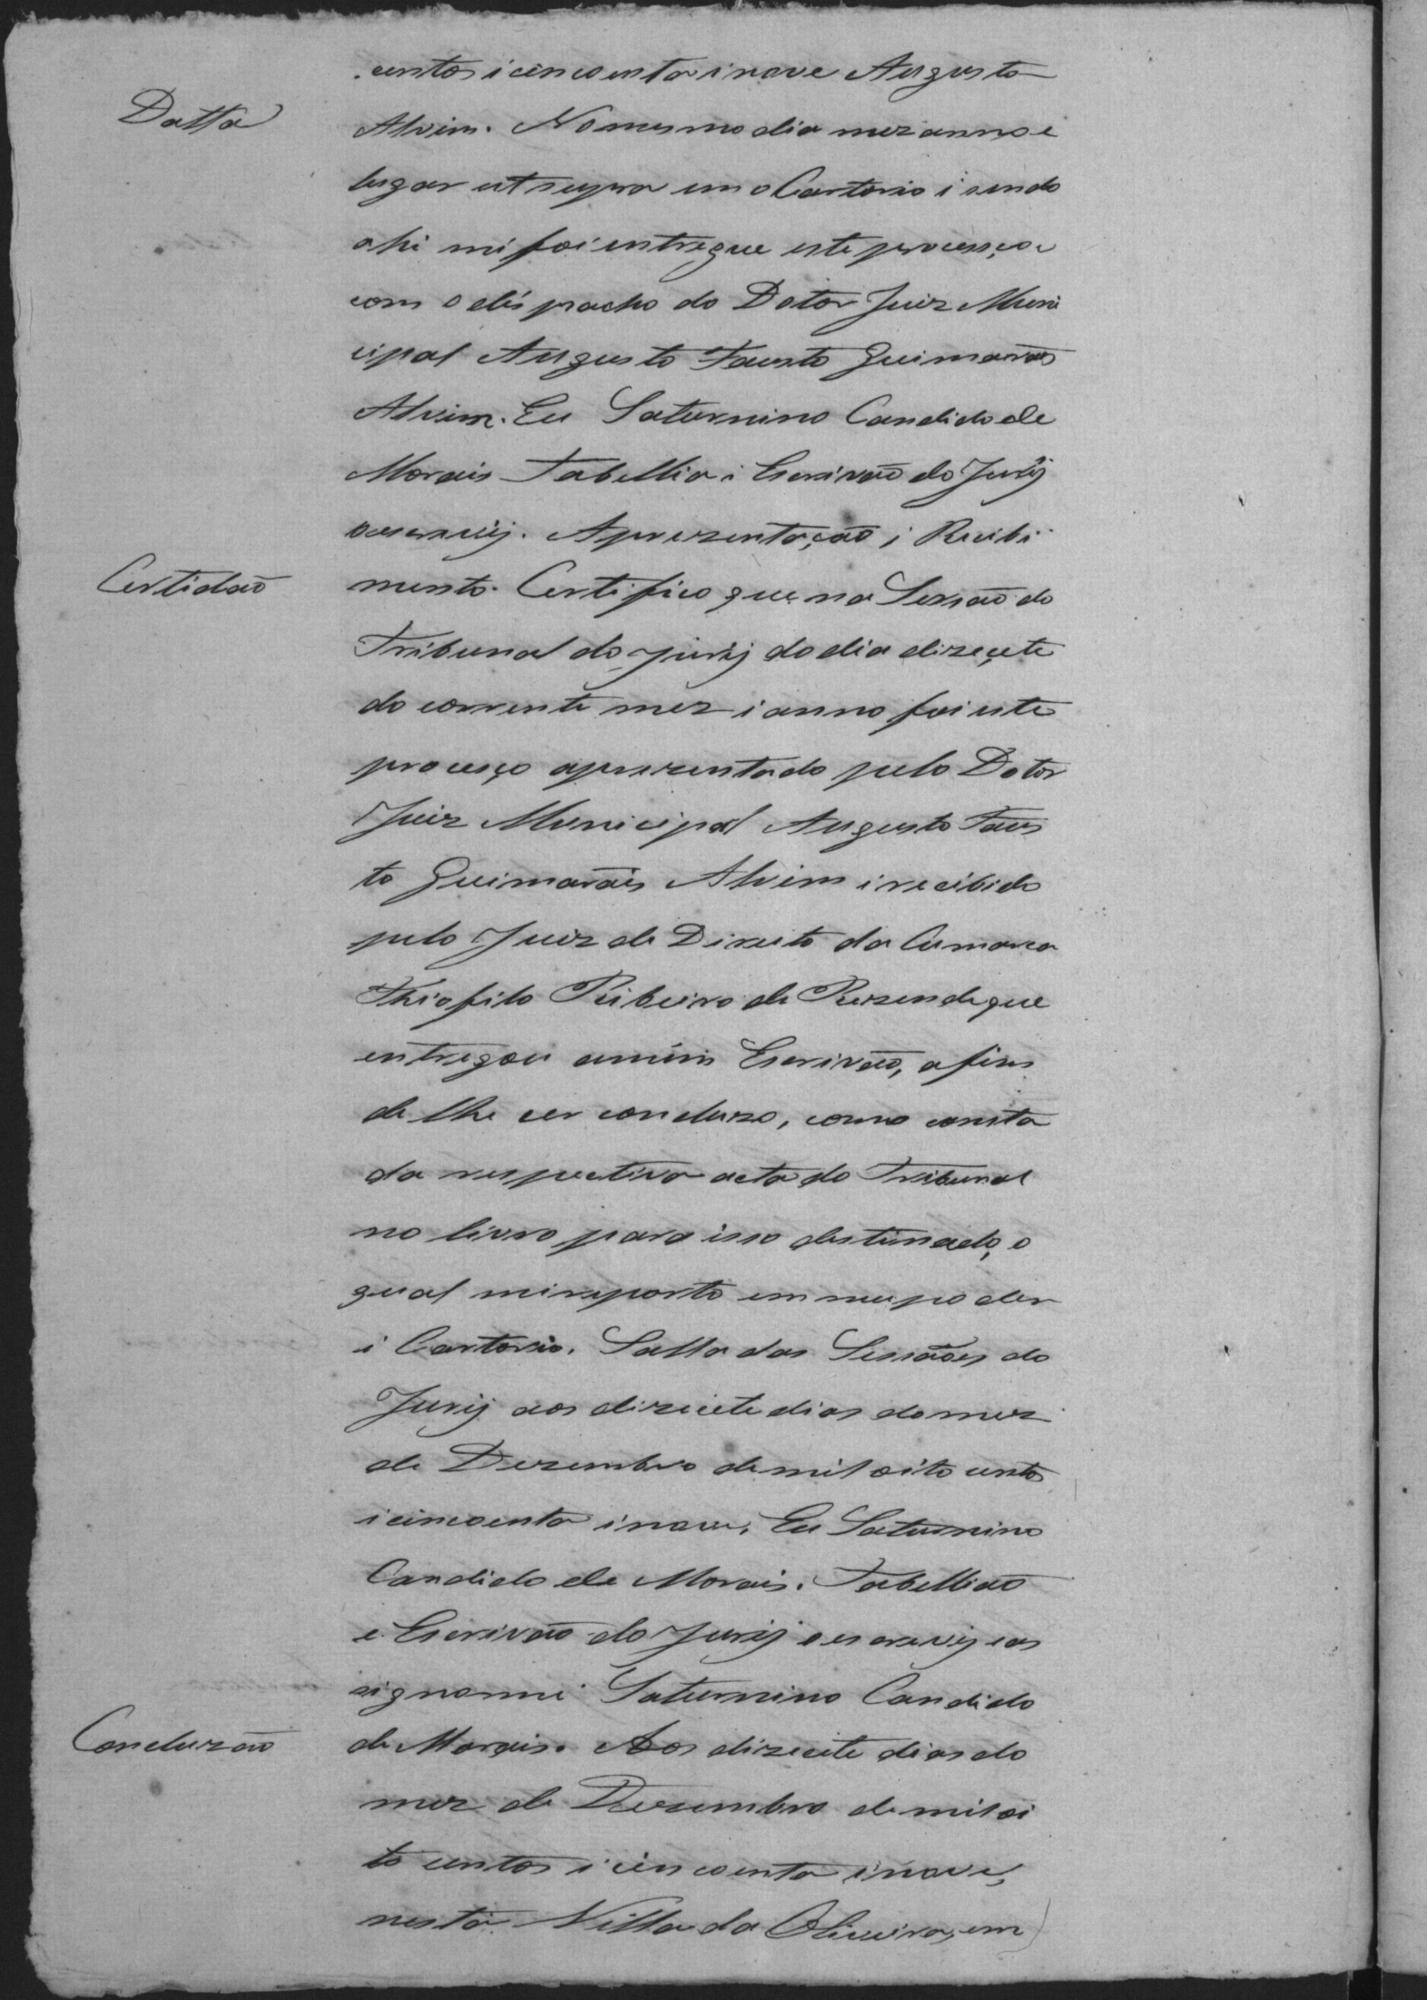 centos i cincoenta i nove Augusto
Datta
Alvim. No mesmo dia mez anno e
lugar ut supra em o Cartorio i sendo
ahi mi foi entregue este processo
com o dispacho do Dotor Juiz Muni
cipal Augusto Fausto Guimarães
Alvim. Eu Saturnino Candido de
Morais Tabellia i Escrivaõ do Jurij
o escrevij. Aprezentaçaõ i Recibi
Certidaõ
mento. Certifico que na Sessaõ do
Tribunal do Jurij do dia dizecete
do corrente mez i anno foi este
proceço aprezentado pelo Dotor
Juiz Municipal Augusto Faus
to Guimarãis Alvim i recibido
pelo Juiz de Direito da Cumarca
Thiofilo Ribeiro de Rezende que
entregou amim Escrivaõ, afim
de lhe cer concluzo, como consta
da respectiva acta do Tribunal
no livro para isso destinado, o
qual mi reporto em meu poder
i Cartorio. Salla das Sessaões do
Jurij aos dizecete dias do mez
de Dezembro de mil oito centos
i cincoenta i nove, Eu Saturnino
Candido de Morais. Tabelliaõ
e Escrivaõ do Jurij o escrevij e as
signomi Saturnino Candido
Concluzaõ
de Morais. Aos dizecete dias do
mez de Dezembro de mil oi
to centos i cincoenta i nove,
nesta Villa da Oliveira, em